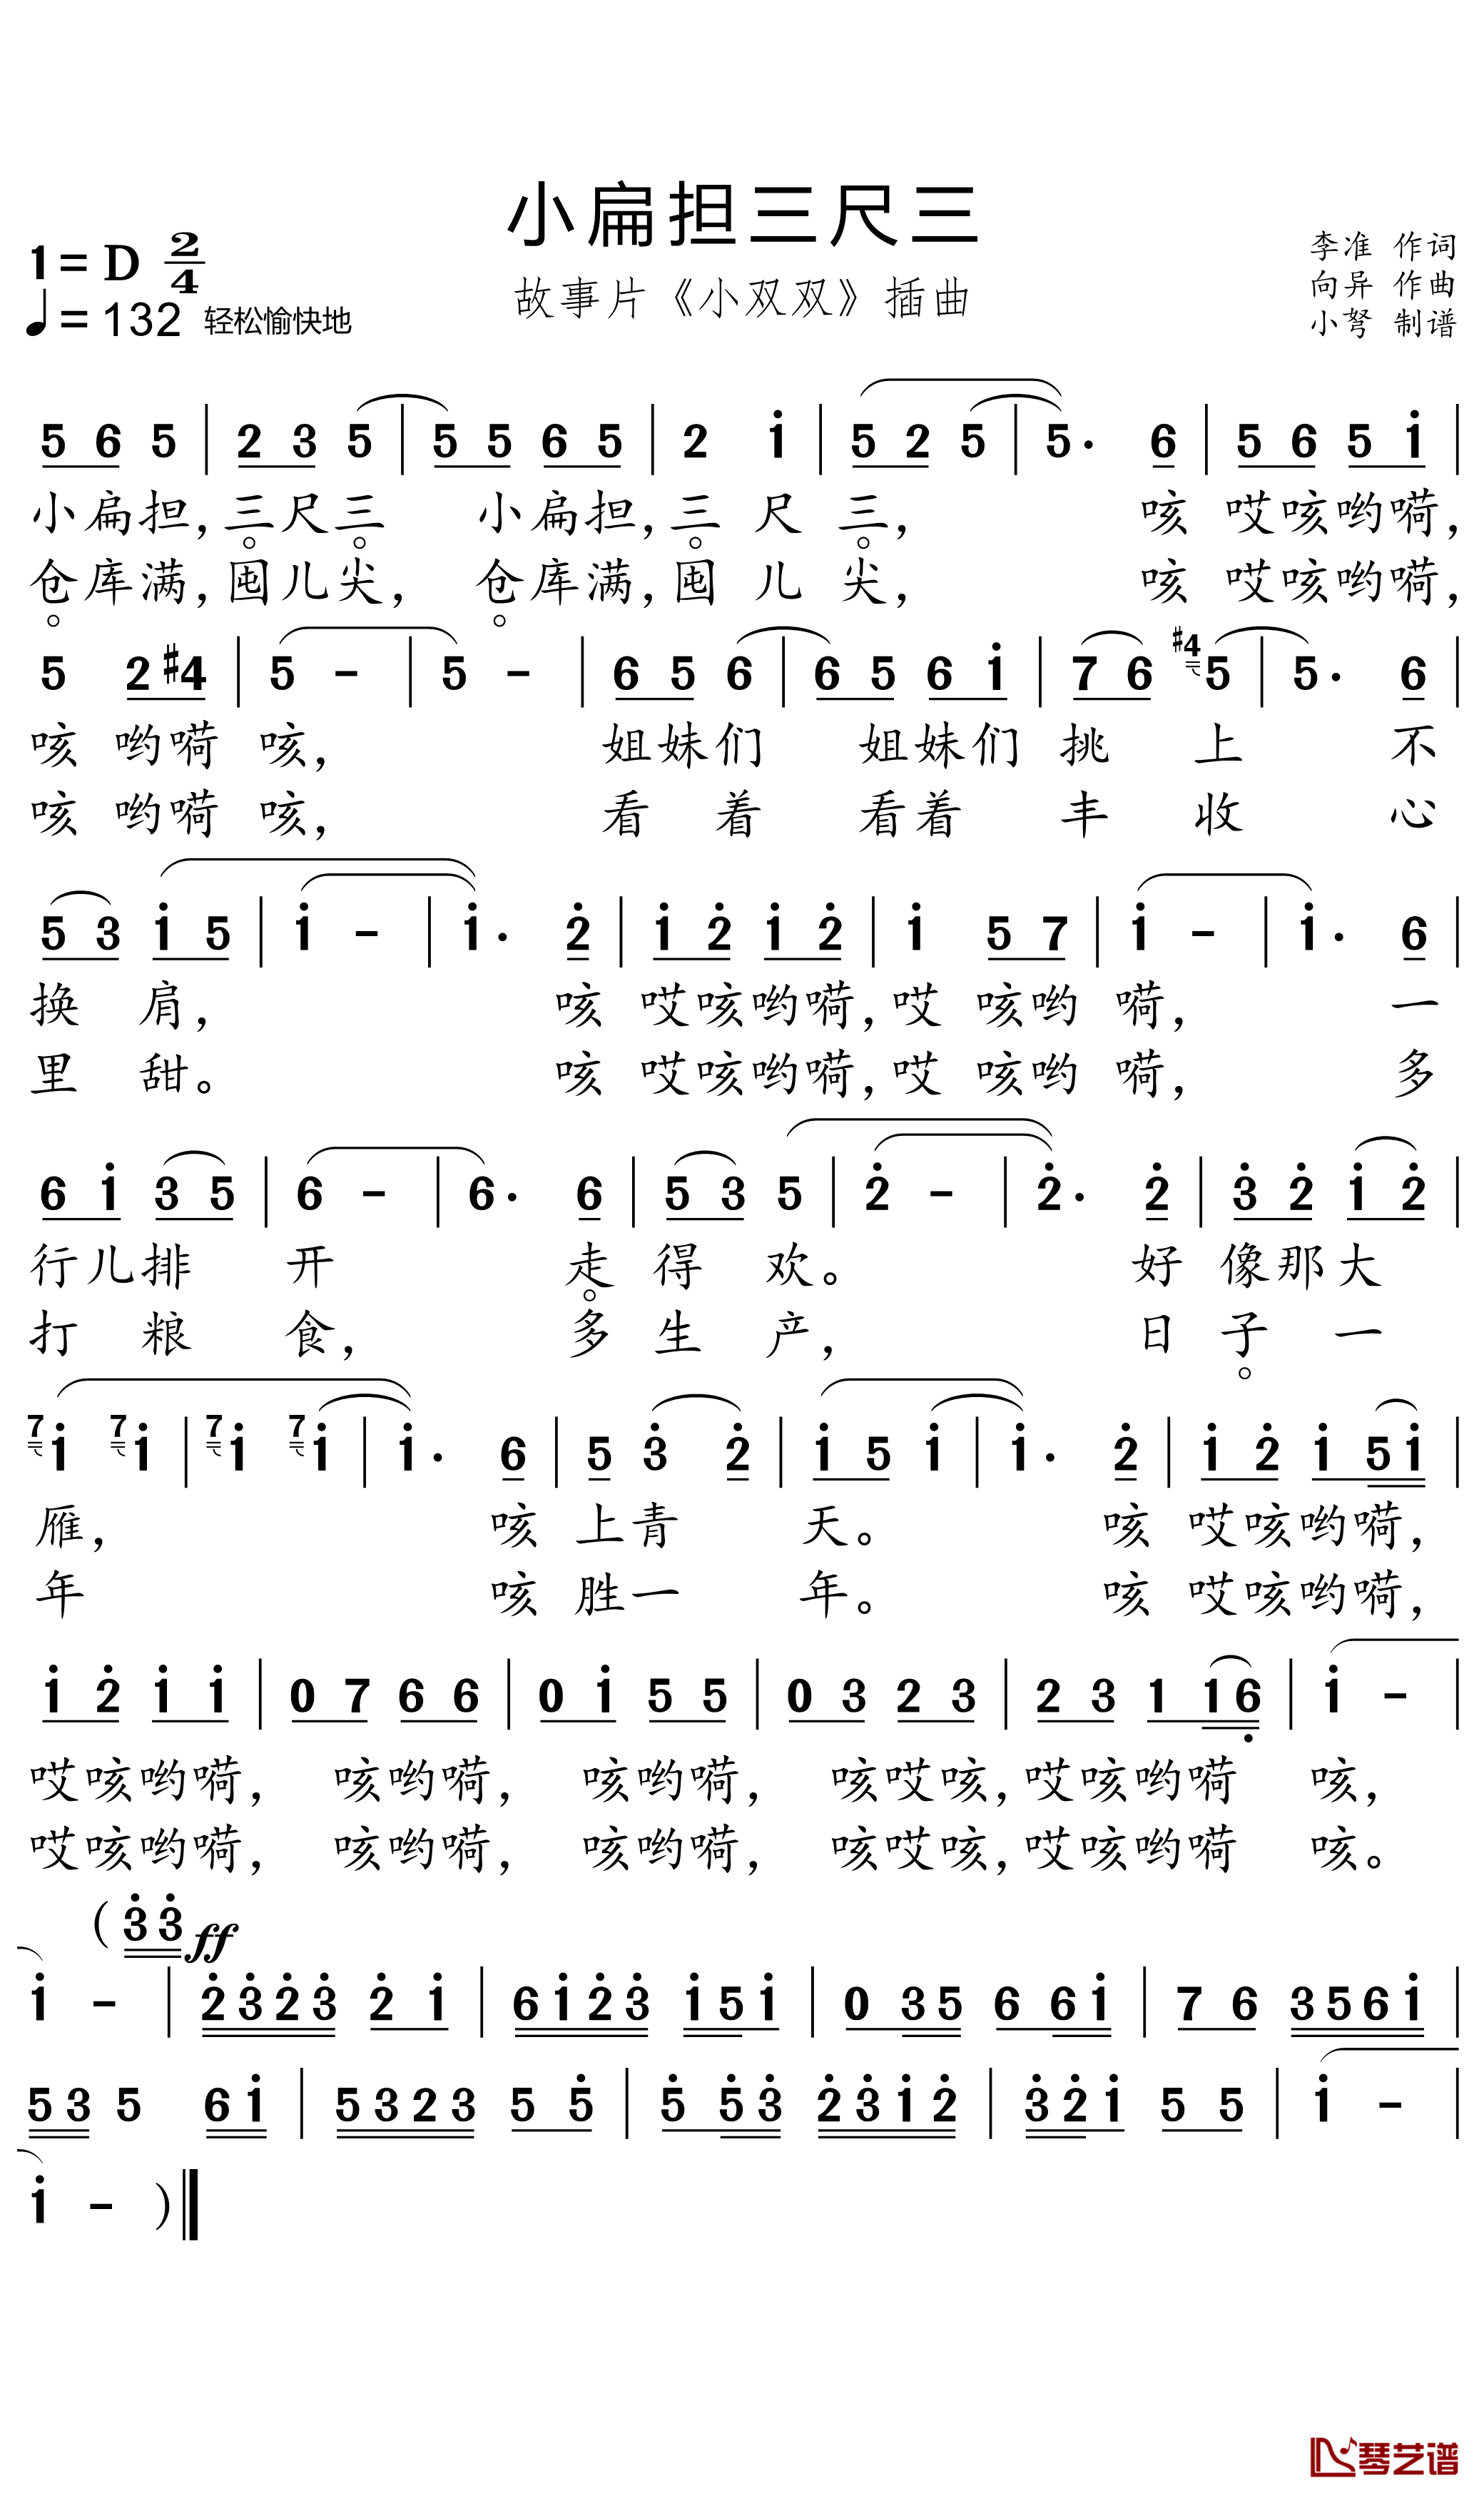 小扁担三尺三
1=D 2/4
李准 作词
故事片《小双双》插曲
向异 作曲
♩=132 轻松愉快地
小弩 制谱
5 6 5 | 2 3 5 | 5 5 6 5 | 2 i | 5 2 5 | 5· 6 | 5 6 5 i |
小扁担,三尺三 小扁担,三尺三, 咳 哎咳哟嗬,
仓库满,囤儿尖, 仓库满,囤儿尖, 咳 哎咳哟嗬,
5 2 #4 | 5 - | 5 - | 6 5 6 | 6 5 6 i | 7 6 #4 5 | 5· 6 |
咳 哟嗬 咳, 姐妹们 姐妹们 挑 上 不
咳 哟嗬 咳, 看 着 看着 丰 收 心
5 3 i 5 | i - | i· 2̇ | i 2̇ i 2̇ | i 5 7 | i - | i· 6 |
换 肩, 咳 哎咳哟嗬,哎 咳哟 嗬, 一
里 甜。 咳 哎咳哟嗬,哎 咳哟 嗬, 多
6 i 3 5 | 6 - | 6· 6 | 5 3 5 | 2̇ - | 2̇· 2̇ | 3̇ 2̇ i 2̇ |
行儿排 开 走 得 欢。 好 像那大
打 粮 食, 多 生 产, 日 子 一
7 i 7 i | 7 i 7 i | i· 6 | 5 3̇ 2̇ | i 5 i | i· 2̇ | i 2̇ i 5 i |
雁, 咳 上青 天。 咳 哎咳哟嗬,
年 咳 胜一 年。 咳 哎咳哟嗬,
i 2̇ i i | 0 7 6 6 | 0 i 5 5 | 0 3 2 3 | 2 3 1 1 6̣ | i - |
哎咳哟嗬, 咳哟嗬, 咳哟嗬, 咳哎咳,哎咳哟嗬 咳,
哎咳哟嗬, 咳哟嗬, 咳哟嗬, 咳哎咳,哎咳哟嗬 咳。
( 3̇ 3̇ ff
i - | 2̇ 3̇ 2̇ 3̇ 2̇ i | 6 i 2̇ 3̇ i 5 i | 0 3 5 6 6 i | 7 6 3 5 6 i |
5 3 5 6 i | 5 3 2 3 5 5̇ | 5̇ 5̇ 3̇ 2̇ 3̇ i 2̇ | 3̇ 2̇ i 5 5 | i - |
i - )
琴艺谱